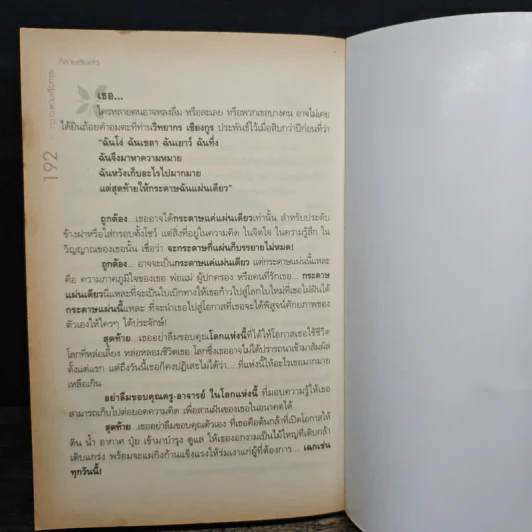 192
เธอ...
ใครหลายคนอาจหลงลืม หรือละเลย หรือพวกเธอบางคน อาจไม่เคย
ได้ยินถ้อยคำอมตะที่ท่านวิทยากร เชียงกูร ประพันธ์ไว้เมื่อสิบกว่าปีก่อนที่ว่า
"ฉันโง่ ฉันเขลา ฉันเยาว์ ฉันทึ่ง
ฉันจึงมาหาความหมาย
ฉันหวังเก็บอะไรไปมากมาย
แต่สุดท้ายให้กระดาษฉันแผ่นเดียว"
ถูกต้อง...เธออาจได้กระดาษแค่แผ่นเดียวเท่านั้น สำหรับประดับ
ข้างฝาหรือใส่กรอบตั้งโชว์ แต่สิ่งที่อยู่ในความคิด ในจิตใจ ในความรู้สึก ใน
วิญญาณของเธอนั้น เชื่อว่า จะกระดาษกี่แผ่นก็บรรยายไม่หมด!
ถูกต้อง... อาจจะเป็นกระดาษแค่แผ่นเดียว แต่กระดาษแผ่นนี้แหละ
คือ ความภาคภูมิใจของเธอ พ่อแม่ ผู้ปกครอง หรือคนที่รักเธอ... กระดาษ
แผ่นเดียวนี่แหละที่จะเป็นใบเบิกทางให้เธอก้าวไปสู่โลกใบใหม่ที่เธอใฝ่ฝันได้
กระดาษแผ่นนี้แหละ ที่จะนำเธอไปสู่โอกาสที่เธอจะได้พิสูจน์ศักยภาพของ
ตัวเองให้ใครๆ ได้ประจักษ์!
สุดท้าย...เธออย่าลืมขอบคุณโลกแห่งนี้ที่ได้ให้โอกาสเธอใช้ชีวิต
โลกที่หล่อเลี้ยง หล่อหลอมชีวิตเธอ โลกซึ่งเธออาจไม่ได้ปรารถนาเข้ามาสัมผัส
ตั้งแต่แรก แต่ถึงวันนี้เธอก็คงปฏิเสธไม่ได้ว่า... ที่แห่งนี้ให้อะไรเธอมากมาย
เหลือเกิน
อย่าลืมขอบคุณครู-อาจารย์ ในโลกแห่งนี้ ที่มอบความรู้ให้เธอ
สามารถเก็บไปต่อยอดความคิด เพื่อสานฝันของเธอในอนาคตได้
สุดท้าย ...เธออย่าลืมขอบคุณตัวเอง ที่เธอคือต้นกล้าที่เปิดโอกาสให้
ดิน น้ำ อากาศ ปุ๋ย เข้ามาบำรุง ดูแล ให้เธองอกงามเป็นไม้ใหญ่ที่เติบกล้า
เติบแกร่ง พร้อมจะแผ่กิ่งก้านแข็งแรงให้ร่มเงาแก่ผู้ที่ต้องการ... เฉกเช่น
ทุกวันนี้!